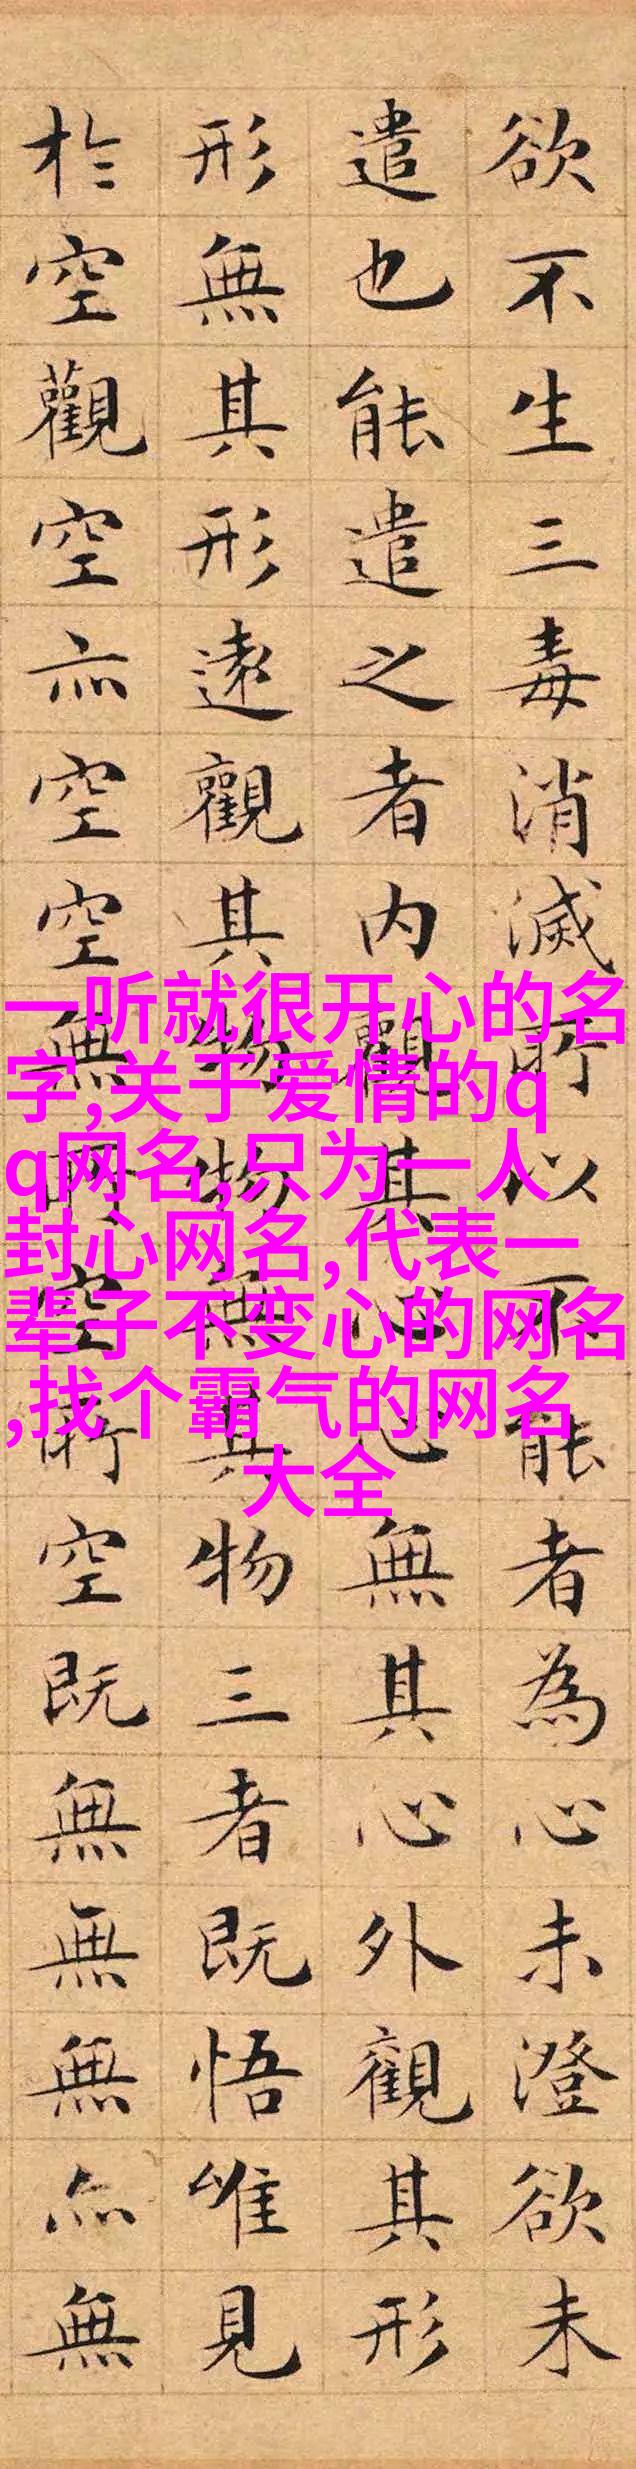 欲不生三毒消滅所以不能者為心未澄欲未
遣也能遣之者内觀其心心無其心外觀其形
形無其形遠觀其物物無其物三者既悟唯見
於空觀空亦空空無所空所空既無無無亦無
一听就很开心的名
字,关于爱情的q
q网名,只为一人
封心网名,代表一
辈子不变心的网名
,找个霸气的网名
大全